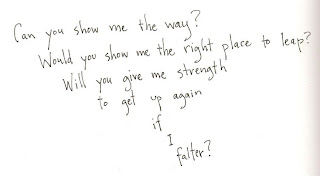 Can you show me the way?
Would you show me the right place to leap?
Will you give me strength
to get up again
if
I
falter?